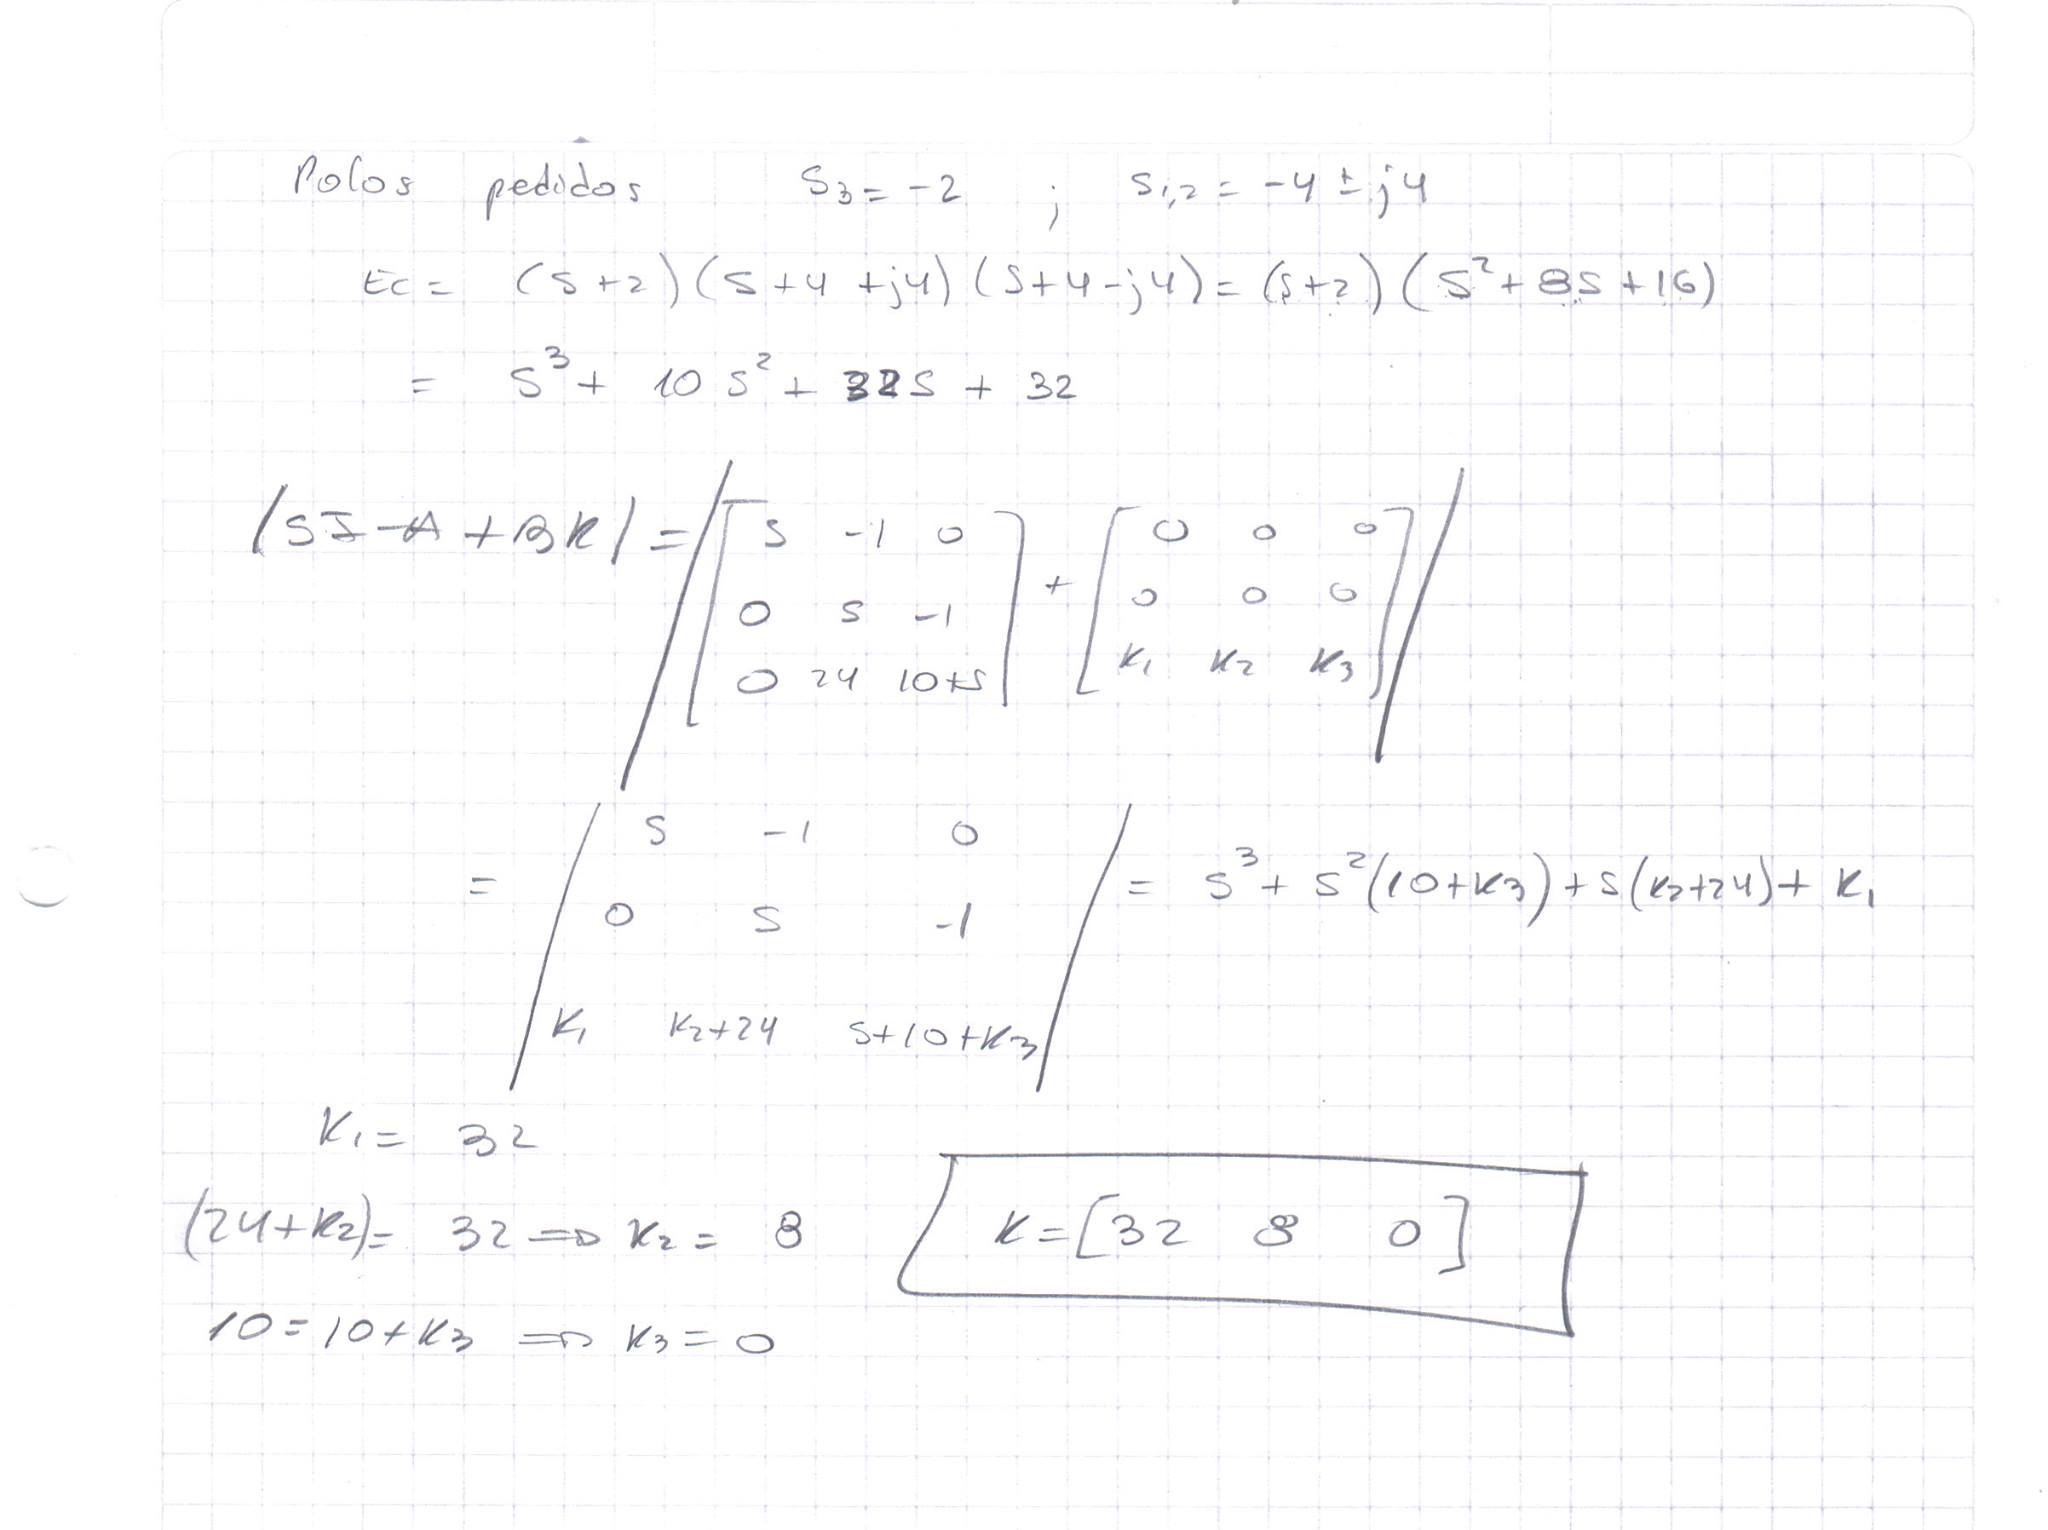 Polos pedidos S3 = -2 ; S1,2 = -4 ± j4
Ec = (S+2)(S+4+j4)(S+4-j4) = (S+2)(S²+8S+16)
= S³ + 10S² + 32S + 32
|SI-A+BK| = |[S -1 0
0 S -1
0 24 10+S] + [0 0 0
0 0 0
K1 K2 K3]|
= |S -1 0
0 S -1
K1 K2+24 S+10+K3| = S³ + S²(10+K3) + S(K2+24) + K1
K1 = 32
(24+K2) = 32 => K2 = 8
10 = 10+K3 => K3 = 0
K = [32 8 0]